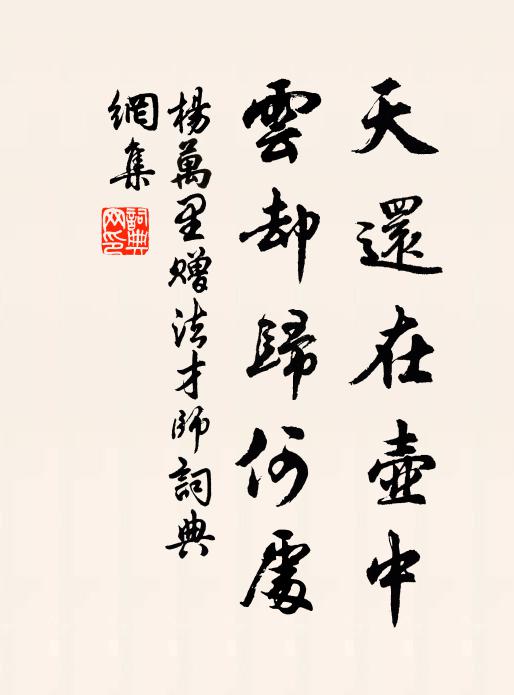 天還在壺中
雲却歸何處
楊萬里贈法才師詞典
網集
詞典網印